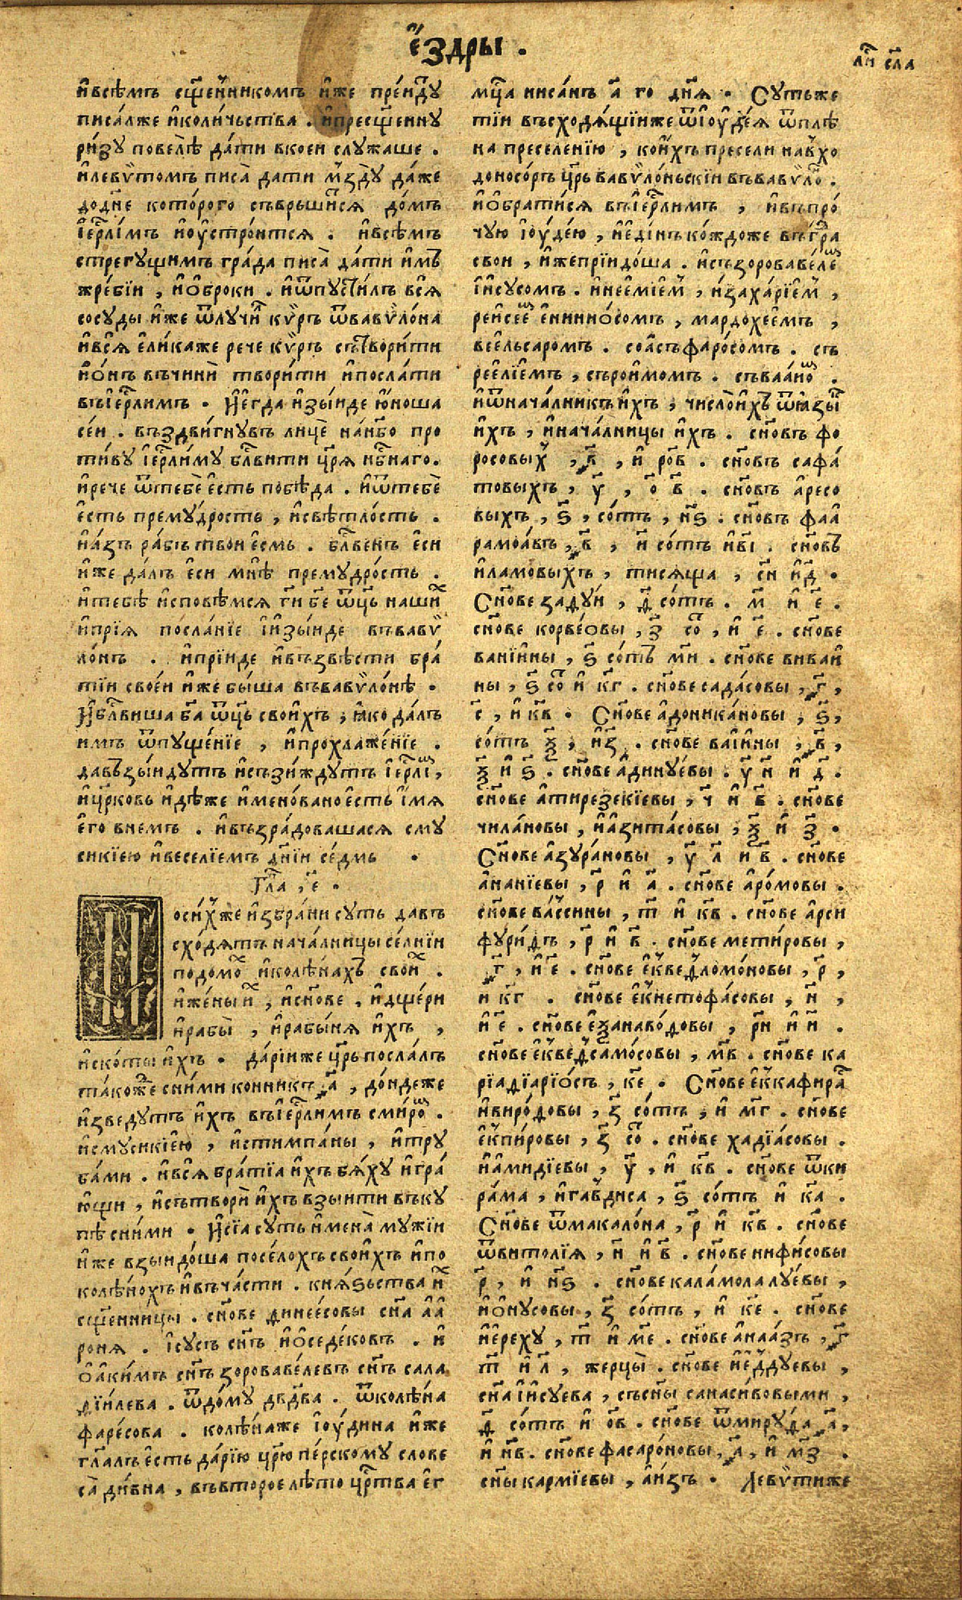 е҆́здры .
ли́ сл҃а
и҆всѣмъ сщ҃е́нникомъ и҆́же прїи́дꙋ
писа́лже и҆коли́чьства . и҆пресщ҃еннꙋ
ри́зꙋ повелѣ̀ да́ти вкоеи слꙋжаше .
и҆левѵ́томъ писа̀ дати мъ́здꙋ да́же
додн҃е кото́рого съвръши́сѧ до́мъ
і҆ерⷭ҇ли́мъ и҆оу҆стро́итсѧ . и҆всѣ́мъ
стрегꙋщимъ гра́да писа̀ да́ти и҆мъ
жрѐбїи , и҆ѻ҆́броки . и҆ѿпꙋсти́лъ всѧ̀
сосꙋды и҆́же ѿлꙋчи́ кѵ́ръ ѿвавѵло́на
и҆всѧ̀ е҆ли́каже рече кѵ́ръ сътвори́ти
и҆ѻ҆́нъ въчинѝ твори́ти и҆посла́ти
въі҆ерⷭ҇лимъ . И҆е҆гда и҆зы́иде ю҆́ноша
се́и . въздви́гнꙋвъ лицѐ на́нб҃о про
ти́вꙋ і҆ерⷭ҇ли́мꙋ блⷭ҇ви́ти цр҃ѧ̀ нб҃наго.
и҆рече ѿтебѐ є҆́сть побѣ́да . и҆ѿтебѐ
є҆́сть премꙋ́дрость , и҆свѣ́тлость .
и҆а́зъ ра́бъ твои є҆́смь . блⷭ҇ве́нъ є҆си
и҆́же да́лъ є҆си мнѣ̀ премꙋдро́сть .
и҆тебѣ̀ и҆сповѣмсѧ гⷭ҇и бж҃е ѿц҃ъ наши́
и҆прїѧ посла́нїе и҆и҆зы́иде въвавѵ
ло́нъ . и҆прїиде и҆възвѣ́сти бра́
тїи свое́и и҆́же бы́ша въвавѵло́нѣ .
И҆блⷭ҇виша бг҃а ѿц҃ъ свои́хъ ; ꙗ҆́ко да́лъ
имъ ѿпꙋще́нїе , и҆прохлаже́нїе .
давъзы́идꙋтъ и҆съзи́ждꙋтъ і҆ерⷭ҇лиⷨ ,
и҆цр҃ковь и҆дѣ́же и҆менова́но є҆́сть и҆́мѧ
є҆го̀ внемъ . и҆възра́довашасѧ смꙋ
сикїею и҆веселїемъ дн҃їи се́дмь .
Гла , е҃ .
Посиⷯже и҆збра́ни сꙋть давъ
сходѧтъ нача́лницы се́лнїи
подомоⷨ и҆колѣ́нахъ свои́ .
и҆же́ны и҆ , и҆сн҃ове , и҆дще́ри
и҆рабы̀ , и҆рабы́нѧ и҆́хъ ,
и҆ско́ты и҆́хъ . да́рїиже цр҃ь посла́лъ
та́коже сни́ми конникъ ҂а҃ , до́ндеже
и҆зведꙋтъ и҆́хъ въі҆ерⷭ҇лимъ смироⷨ .
и҆смꙋсикі́ею , и҆стимпа́ны , и҆трꙋ
ба́ми . и҆всѧ̀ бра́тїа и҆́хъ бѧ́хꙋ и҆гра́
ю҆щи , и҆сътворѝ и҆́хъ взыити въкꙋ
пѣ сни́ми . И҆сїа̀ сꙋть и҆мена̀ мꙋ́жїи
и҆́же взыидо́ша посе́лохъ свои́хъ и҆по
колѣ́нохъ и҆въча́сти . кнѧѕьства и́хъ
сщ҃е́нницы . сн҃ове динеесовы сн҃а а҆а
роня . і҆сꙋсъ сн҃ъ и҆ѻ҆седе́ковъ . и҆
ѻ҆а҆ки́мъ сн҃ъ зорова́вѐлевъ сн҃ъ сала
дїи́лева . ѿдо́мꙋ дв҃два . ѿколѣ́на
фаре́сова . колѣ́наже і҆оу́дина и҆́же
гл҃алъ є҆́сть да́рїю цр҃ю пе́рскомꙋ слове
са̀ ди́вна , въвторое лѣ́то црⷭ҇тва є҆г
мцⷭ҇а ниса́нъ а҃ го дн҃ѧ . Сꙋтьже
тїи въсходѧ́щїиже ѿі҆оу҆де́ѧ ѿплѣ
на преселенїю , кои́хъ пресели навхо
доносо́ръ цр҃ь вавѵло́ньскїи въвавѵлоⷩ .
и҆ѻ҆брати́сѧ въі҆ерⷭ҇лимъ , и҆въпро́
чꙋю і҆оу҆де́ю , и҆є҆ди́нъ ко́ждоже въгра
свои , и҆́жепрїидо́ша . и҆съзоровавелеⷨ
і҆и҆сꙋсомъ . и҆нее҆мі́емъ , и҆заха́рїемъ ,
реи҆сееⷨ е҆ниниѻ́сомъ , мардохе́емъ ,
ве́ельсаромъ . соа҆съфаро́сомъ . съ
рее҆лїемъ , съроимомъ . съваа҆ноⷨ .
и҆ѿнача́лникъ и҆́хъ ; число́и҆хъ ѿꙗ҆зы́
и҆́хъ , и҆нача́лницы и҆хъ . сн҃овъ фо
росовыхъ , ҂в҃ , и҆ ро҃в . сн҃овъ сафа́
товыхъ , у҃ , о҃ в҃ . сн҃овъ а҆ресо
выхъ , ѕ҃ , со́тъ , н҃ѕ . сн҃овъ фаа҆
рамоа҆въ , ҂в҃ , и҆ со́тъ и҆ві҃ . сн҃овъ
и҆ламовыхъ , тисѧща , сн҃ и҆д҃ .
Сн҃ове задꙋи , д҃ со́тъ . м҃ и҆ е҃ .
сн҃ове корве́ѻвы , з҃ соⷮ , и҆ е҃ . сн҃ове
вани́ины , ѕ҃ со́тъ м҃и . сн҃ове виваи
ны , ѕ҃ соⷮ и҆ к҃г . сн҃ове сада́совы , ҂г҃ ,
с҃ , и҆ к҃в . Сн҃ове а҆доника́новы , ѕ҃ ,
со́тъ ѯ҃ , и҆з҃ . сн҃ове ваі́ины , ҂в҃ ,
ѯ҃ и҆ ѕ҃ . сн҃ове а҆динꙋе́вы . у҃ н҃ и҆ д҃ .
сн҃ове а҆тирезекі́евы , ч҃ и҆ в҃ . сн҃ове
чила́новы , и҆а҆зита́совы , ѯ҃ и҆ з҃ .
Сн҃ове а҆зꙋра́новы , у҃ л҃ и҆ в҃ . сн҃ове
а҆нанїевы , р҃ и҆ а҃ . сн҃ове а҆ро́мовы .
сн҃ове ва́ссины , т҃ и҆ к҃в . сн҃ове а҆рси
фꙋри́дъ , р҃ и҆ в҃ . сн҃ове мети́ровы ,
҂г҃ , и҆е҃ . сн҃ове е҆кведломо́новы , р҃ ,
и҆ к҃г . сн҃ове е҆кнетофа́совы , н҃ ,
и҆ е҃ . сн҃ове е҆ѯанаво́довы , рн҃ и҆ и҃ .
сн҃ове е҆кведсамо́совы , м҃в . сн҃ове ка
рїадїарїо́съ , к҃е . Сн҃ове е҆ккафира
и҆виро́довы , з҃ со́тъ , и҆ м҃г . сн҃ове
е҆кпи́ровы , з҃ соⷮ . сн҃ове хадїа́совы .
и҆а҆мидїевы , у҃ , и҆ к҃в . сн҃ове ѿки
ра́ма , и҆га́вдиса , ѕ҃ со́тъ и҆ к҃а .
Сн҃ове ѿмакало́на , р҃ и҆ к҃в . сн҃ове
ѿвитолїѧ , н҃ и҆ в҃ . сн҃ове нифи́совы
р҃ , и҆ н҃ѕ . сн҃ове кала́мола лꙋе́вы ,
и҆ѻ҆нꙋсовы , з҃ со́тъ , и҆ к҃е . сн҃ове
и҆е҆рехꙋ , т҃ и҆ м҃е . сн҃ове а҆наа́зъ , ҂г҃
т҃ и҆ л҃ , жерцы̀ . сн҃ове и҆е҆ддꙋевы ,
сн҃а і҆и҆сꙋева , съсн҃ы санаси́вовыми ,
д҃ со́тъ и҆ о҃в . сн҃ове ѿмирꙋда ҂а҃ ,
и҆ н҃в . сн҃ове фасаро́новы , ҂а҃ , и҆ м҃з .
сн҃ы карми́евы , а҆и҆зъ . Левѵ́тиже